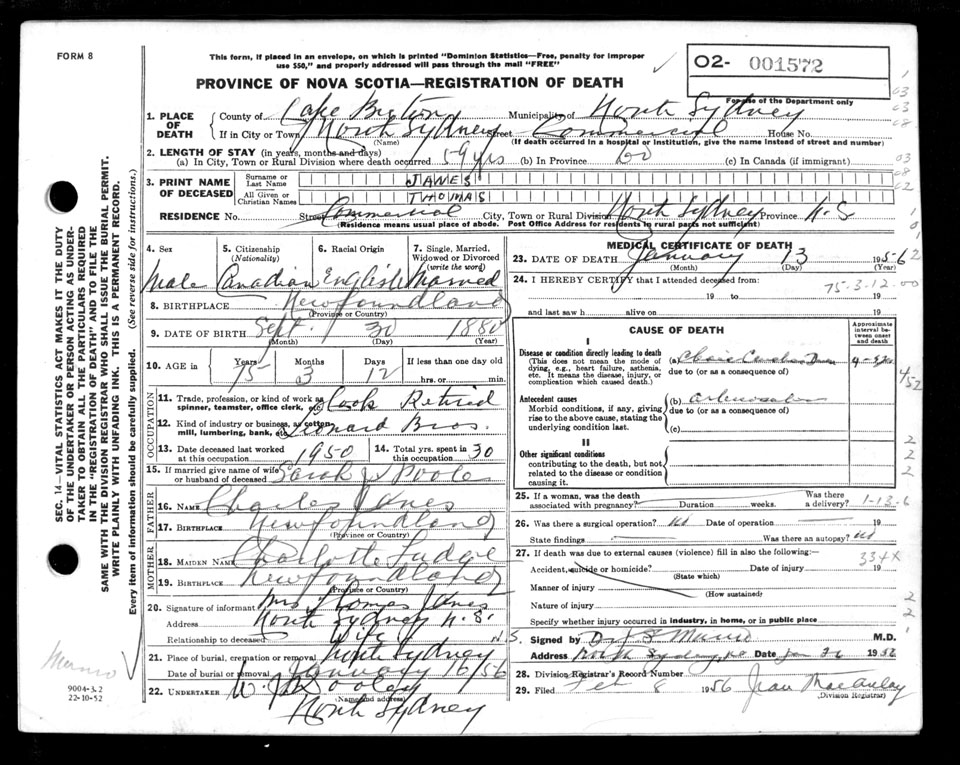 FORM 8
This form, if placed in an envelope, on which is printed "Dominion Statistics—Free, penalty for improper
use $50," and properly addressed will pass through the mail "FREE"
PROVINCE OF NOVA SCOTIA—REGISTRATION OF DEATH
O2- 001572
For use of the Department only
1. PLACE OF DEATH
County of Cape Breton Municipality of North Sydney
If in City or Town North Sydney Street Commercial House No.
(Name) (If death occurred in a hospital or institution, give the name instead of street and number)
2. LENGTH OF STAY (in years, months and days)
(a) In City, Town or Rural Division where death occurred 59 yrs (b) In Province Do (c) In Canada (if immigrant)
3. PRINT NAME OF DECEASED
Surname or Last Name JANES
All Given or Christian Names THOMAS
RESIDENCE No. Street Commercial City, Town or Rural Division North Sydney Province N.S
(Residence means usual place of abode. Post Office Address for residents in rural parts not sufficient)
4. Sex 5. Citizenship (Nationality) 6. Racial Origin 7. Single, Married, Widowed or Divorced (write the word)
Male Canadian English Married
8. BIRTHPLACE Newfoundland
(Province or Country)
9. DATE OF BIRTH Sept. 30 1880
(Month) (Day) (Year)
10. AGE in Years Months Days If less than one day old
75 3 12 hrs. or min.
OCCUPATION
11. Trade, profession, or kind of work as spinner, teamster, office clerk, etc. Cook Retired
12. Kind of industry or business, as cotton mill, lumbering, bank, etc. Leonard Bros.
13. Date deceased last worked at this occupation 1950 14. Total yrs. spent in this occupation 30
15. If married give name of wife or husband of deceased Sarah J. Poole
FATHER
16. NAME Charles Janes
17. BIRTHPLACE Newfoundland
(Province or Country)
MOTHER
18. MAIDEN NAME Charlotte Fudge
19. BIRTHPLACE Newfoundland
(Province or Country)
20. Signature of informant Mrs Thomas Janes
Address North Sydney N.S.
Relationship to deceased Wife
21. Place of burial, cremation or removal North Sydney N.S.
Date of burial or removal January 16/56
22. UNDERTAKER W. J. Dooley
(Name and address)
North Sydney
MEDICAL CERTIFICATE OF DEATH
23. DATE OF DEATH January 13 1956
(Month) (Day) (Year)
24. I HEREBY CERTIFY that I attended deceased from:
75-3-12-00
19 to 19
and last saw h alive on 19
CAUSE OF DEATH
Approximate interval between onset and death
I
Disease or condition directly leading to death
(This does not mean the mode of dying, e.g., heart failure, asthenia, etc. It means the disease, injury, or complication which caused death.)
(a)
due to (or as a consequence of)
4/52
Antecedent causes
Morbid conditions, if any, giving rise to the above cause, stating the underlying condition last.
(b)
due to (or as a consequence of)
(c)
II
Other significant conditions
contributing to the death, but not related to the disease or condition causing it.
25. If a woman, was the death associated with pregnancy? Duration weeks. Was there a delivery? 1-13-6
26. Was there a surgical operation? No Date of operation 19
State findings Was there an autopsy? No
27. If death was due to external causes (violence) fill in also the following: 334X
Accident, suicide or homicide? Date of injury 19
(State which)
Manner of injury
(How sustained)
Nature of injury
Specify whether injury occurred in industry, in home, or in public place
Signed by M.D.
Address North Sydney, NS Date Jan 1956
28. Division Registrar's Record Number
29. Filed Feb 8 1956 Jean MacAulay
(Division Registrar)
SEC. 14—VITAL STATISTICS ACT MAKES IT THE DUTY
OF THE UNDERTAKER OR PERSON ACTING AS UNDER-
TAKER TO OBTAIN ALL THE PARTICULARS REQUIRED
IN THE "REGISTRATION OF DEATH" AND TO FILE THE
SAME WITH THE DIVISION REGISTRAR WHO SHALL ISSUE THE BURIAL PERMIT.
WRITE PLAINLY WITH UNFADING INK. THIS IS A PERMANENT RECORD.
Every item of information should be carefully supplied. (See reverse side for instructions.)
Munro
9004-3.2
22-10-52